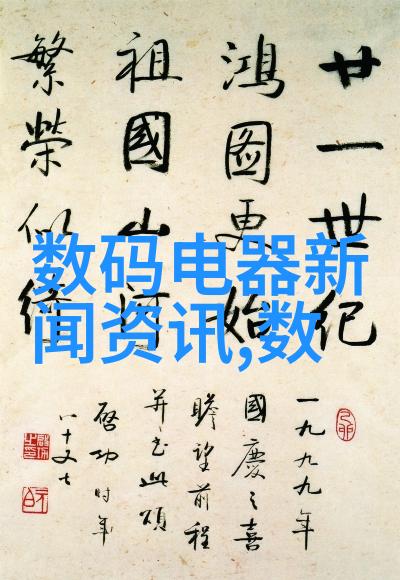 廿一世纪
鸿图更始
祖國山河
繁荣似
一九九九年
國慶之喜
瞻望前程
并书此頌
啓功时年
八十又七
数码电器新
闻资讯,数